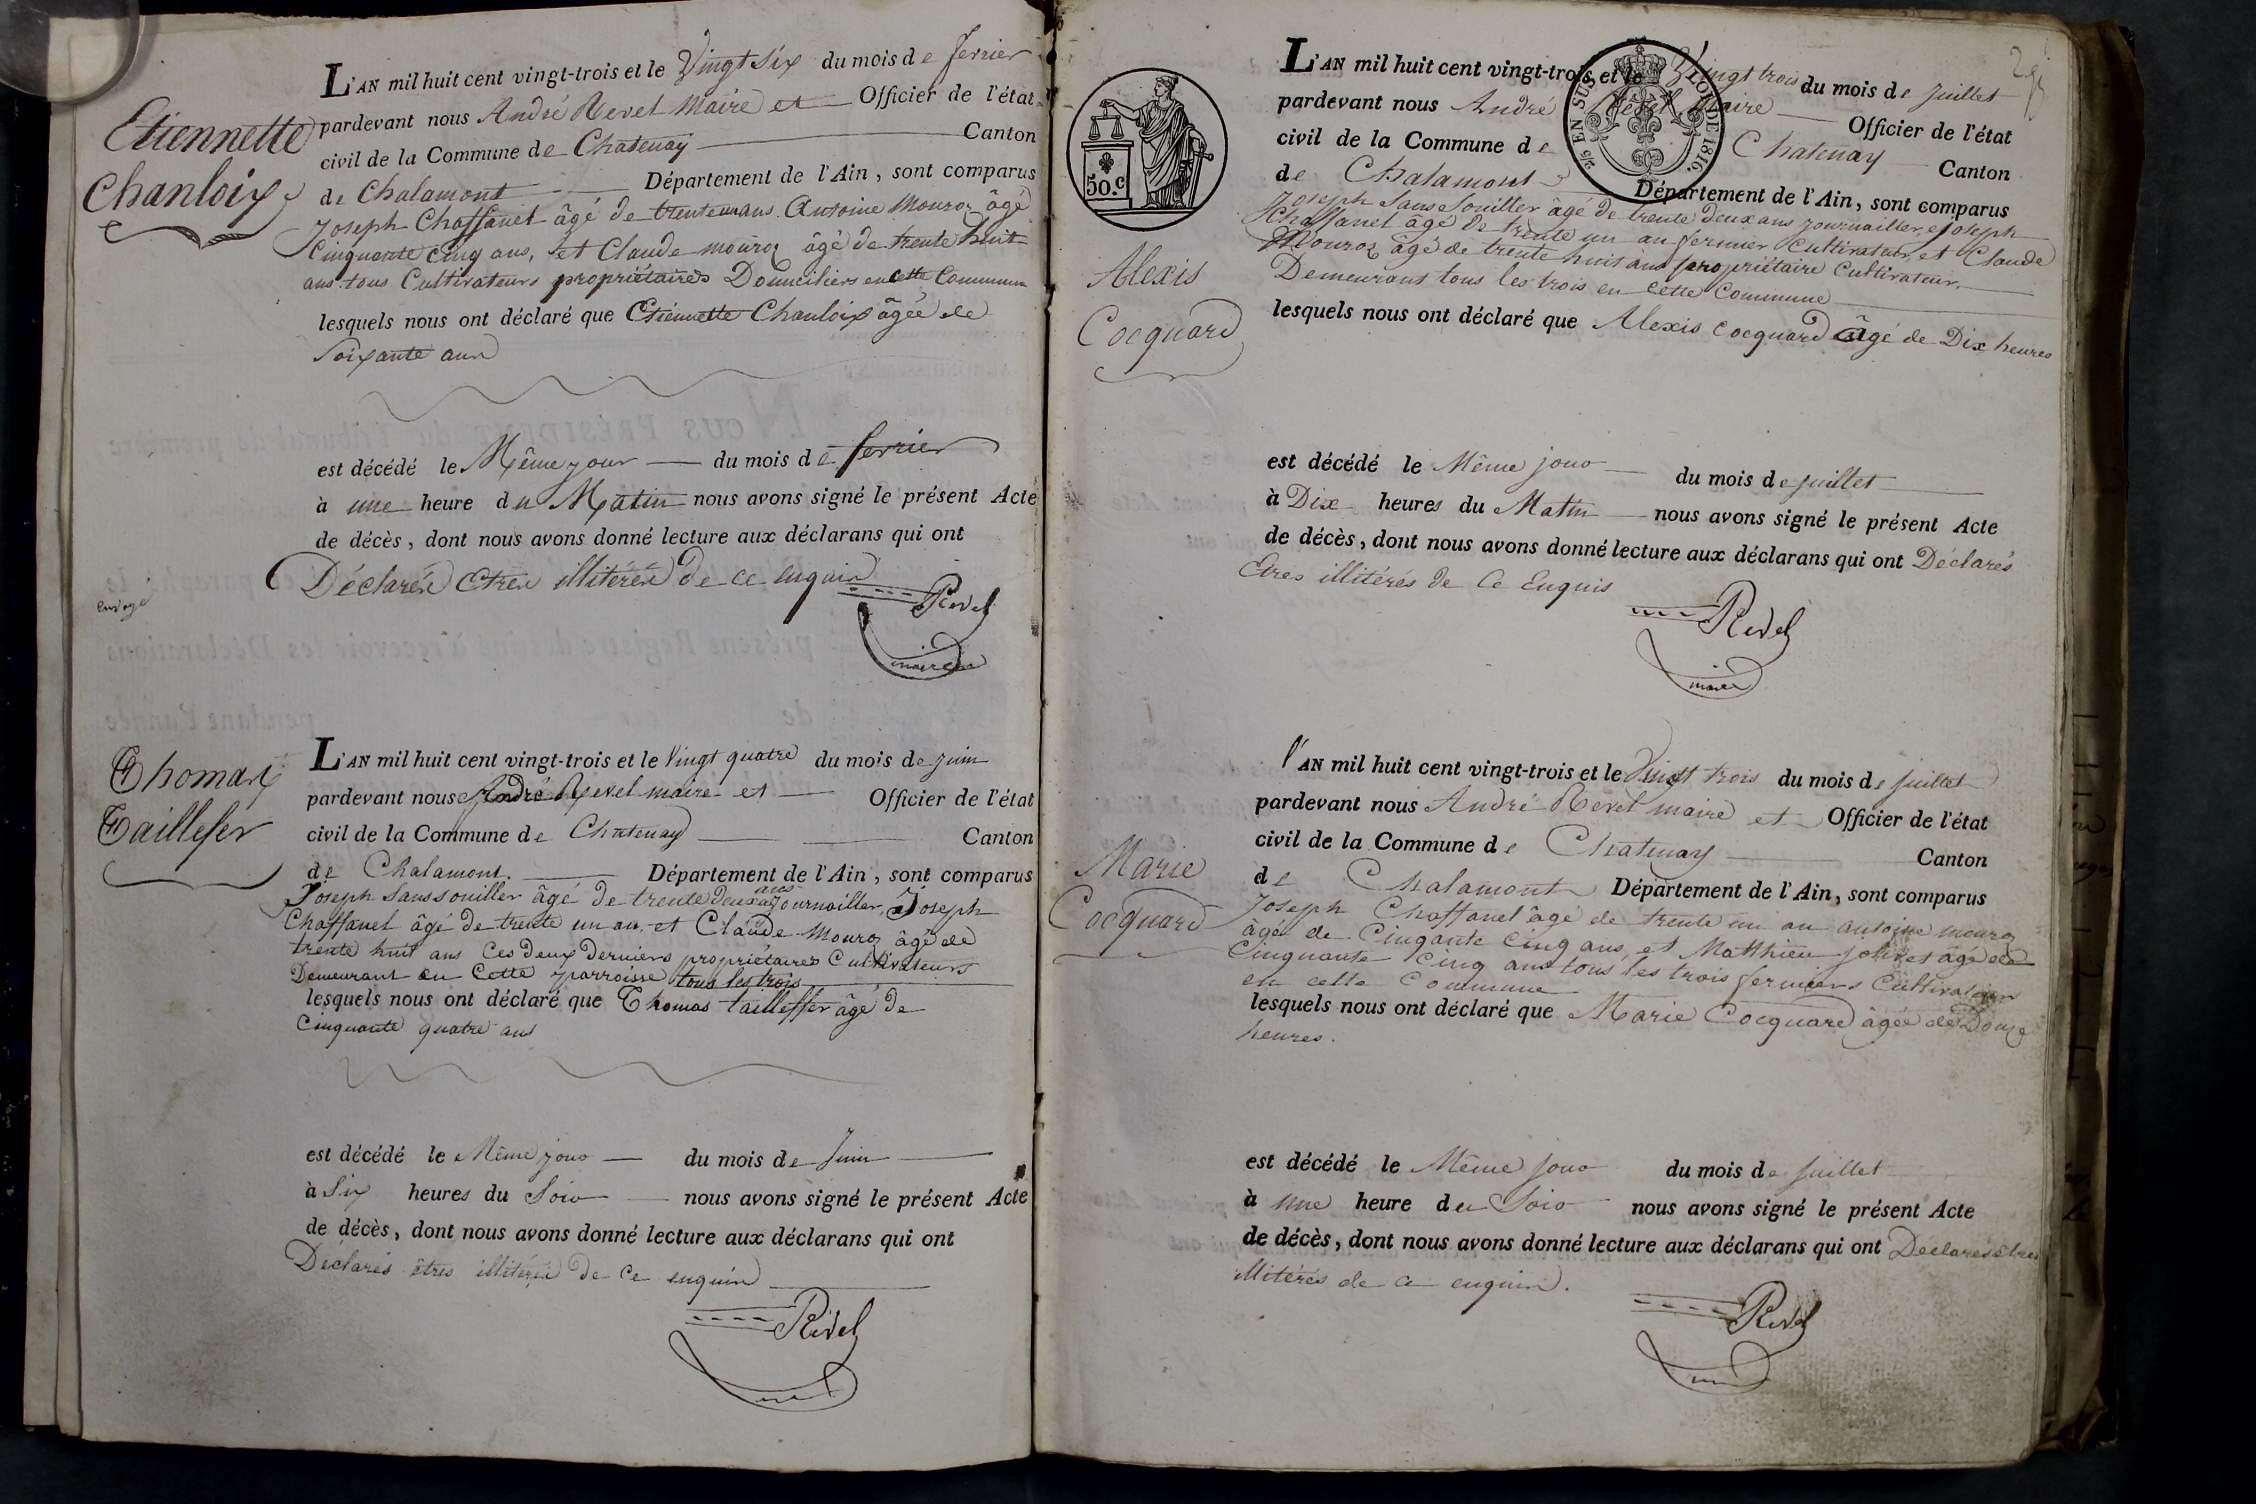 Etiennette
Chanloix
L'AN mil huit cent vingt-trois et le Vingt six du mois de fevrier
pardevant nous André Revel Maire et Officier de l'état
civil de la Commune de Chatenay Canton
de Chalamont Département de l'Ain, sont comparus
Joseph Chaffanel âgé de trente un ans Antoine Mouroz âgé
Cinquante Cinq ans, et Claude mouroz âgé de trente huit
ans tous Cultivateurs propriétaires Domiciliers en cette Commune
lesquels nous ont déclaré que Etiennette Chanloix âgée de
Soixante ans
est décédé le Même jour du mois de fevrier
à une heure du Matin nous avons signé le présent Acte
de décès, dont nous avons donné lecture aux déclarans qui ont
Déclarés Etres illitérés de ce enquis
Revel
maire
Thomas
Taillefer
L'AN mil huit cent vingt-trois et le Vingt quatre du mois de juin
pardevant nous André Revel maire et Officier de l'état
civil de la Commune de Chatenay Canton
de Chalamont. Département de l'Ain, sont comparus
Joseph Sanssouiller âgé de trente deux ans Journailler, Joseph
Chaffanel âgé de trente un an, et Claude Mouroz âgé de
trente huit ans Ces deux Derniers propriétaires Cultivateurs
Demeurant en Cette parroisse tous les trois
lesquels nous ont déclaré que Thomas tailleffer âgé de
Cinquante quatre ans
est décédé le Même jour du mois de Juin
à Six heures du Soir nous avons signé le présent Acte
de décès, dont nous avons donné lecture aux déclarans qui ont
Déclarés êtres illitérés de ce enquis
Revel
50.c
2/5 EN SUS. LOI DE 1816.
Alexis
Cocquard
L'AN mil huit cent vingt-trois et le Vingt trois du mois de juillet
pardevant nous André Revel Maire Officier de l'état
civil de la Commune de Chatenay Canton
de Chalamont Département de l'Ain, sont comparus
Joseph Sanssouiller âgé de trente deux ans journailler, Joseph
Chaffanel âgé de trente un an fermier Cultivateur, et Claude
Mouroz âgé de trente huit ans propriétaire Cultivateur.
Demeurans tous les trois en cette Commune
lesquels nous ont déclaré que Alexis Cocquard âgé de Dix heures
est décédé le Même jour du mois de juillet
à Dix heures du Matin nous avons signé le présent Acte
de décès, dont nous avons donné lecture aux déclarans qui ont Déclarés
Etres illitérés de Ce Enquis
Revel
maire
Marie
Cocquard
l'AN mil huit cent vingt-trois et le Vingt trois du mois de juillet
pardevant nous André Revel maire et Officier de l'état
civil de la Commune de Chatenay Canton
de Chalamont Département de l'Ain, sont comparus
Joseph Chaffanel âgé de trente un an antoine mouroz
âgé de Cinqante Cinq ans, et Matthieu jolivet âgé de
Cinquante Cinq ans tous les trois fermiers Cultivateurs
en cette Commune
lesquels nous ont déclaré que Marie Cocquard âgée de Douze
heures.
est décédé le Même jour du mois de juillet
à une heure du Soir nous avons signé le présent Acte
de décès, dont nous avons donné lecture aux déclarans qui ont Déclarés êtres
illitérés de ce enquis.
Revel